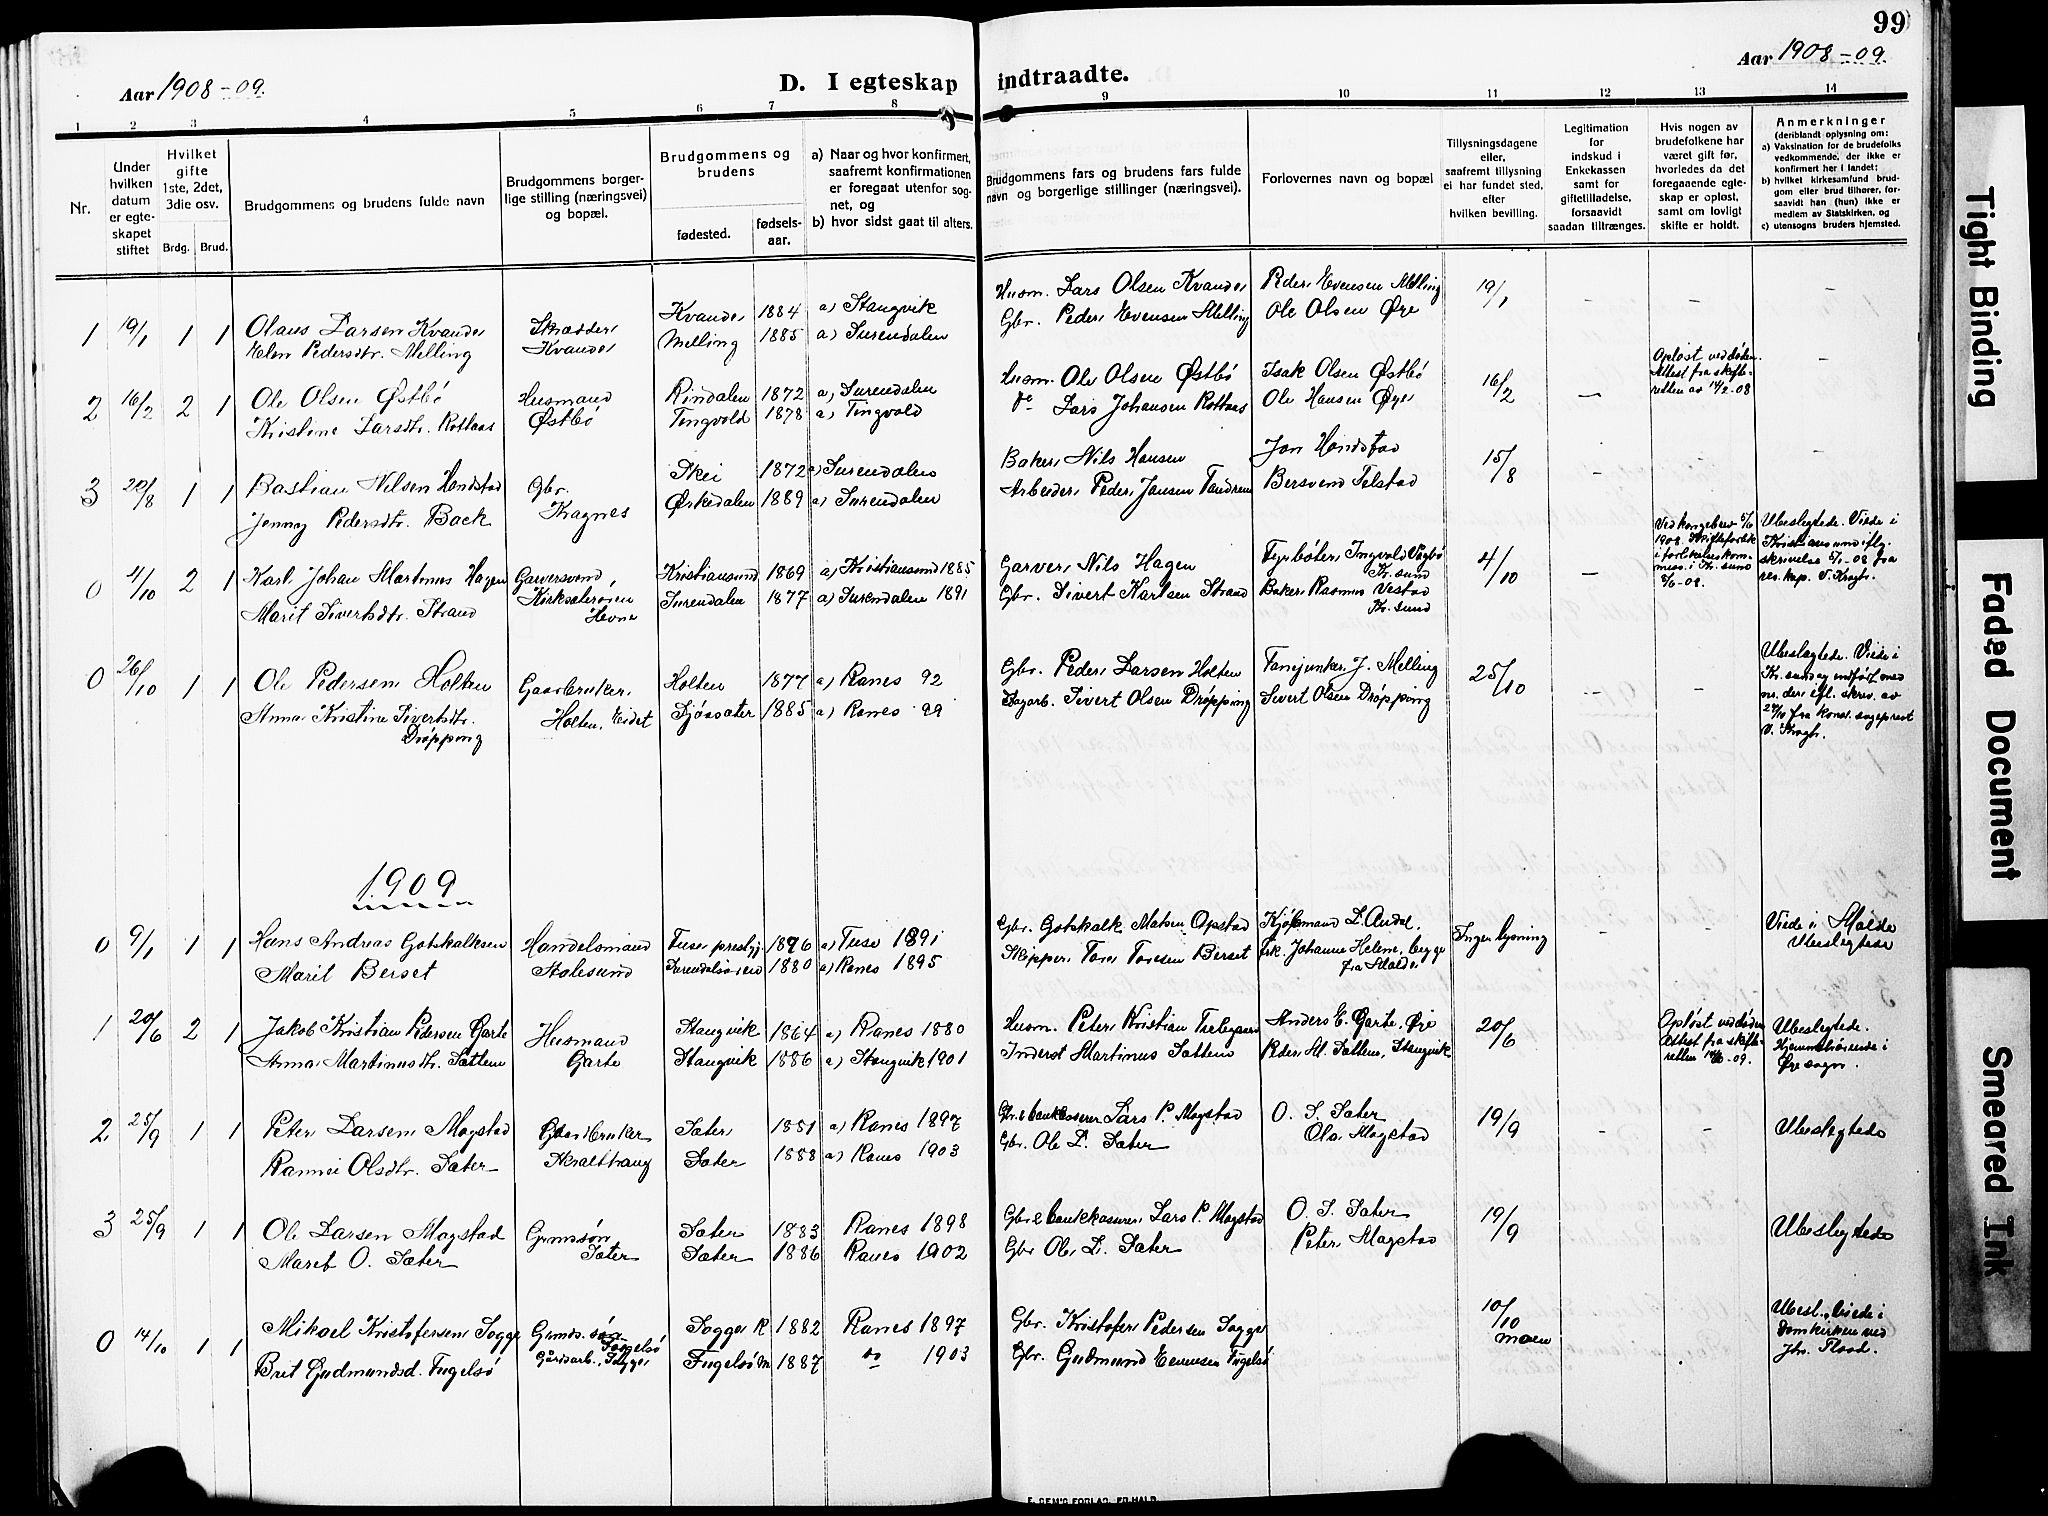 99
Aar 1908-09.
D. I egteskap indtraadte.
Aar 1908-09.
1 2 3 4 5 6 7 8 9 10 11 12 13 14
Nr.
Under hvilken datum er egteskapet stiftet
Hvilket gifte 1ste, 2det, 3die osv.
Brdg. Brud.
Brudgommens og brudens fulde navn
Brudgommens borgerlige stilling (næringsvei) og bopæl.
Brudgommens og brudens
fødested.
fødselsaar.
a) Naar og hvor konfirmert, saafremt konfirmationen er foregaat utenfor sognet, og
b) hvor sidst gaat til alters.
Brudgommens fars og brudens fars fulde navn og borgerlige stillinger (næringsvei).
Forlovernes navn og bopæl
Tillysningsdagene eller, saafremt tillysning ei har fundet sted, efter hvilken bevilling.
Legitimation for indskud i Enkekassen samt for giftetilladelse, forsaavidt saadan tiltrænges.
Hvis nogen av brudefolkene har været gift før, hvorledes da det foregaaende egteskap er opløst, samt om lovligt skifte er holdt.
Anmerkninger
(deriblandt oplysning om:
a) Vaksination for de brudefolks vedkommende, der ikke er konfirmert her i landet;
b) hvilket kirkesamfund brudgom eller brud tilhører, forsaavidt han (hun) ikke er medlem av Statskirken, og
c) utensogns bruders hjemsted.
1 19/1 1 1 Olaus Larsen Kvande Skrædder Kvande 1884 a) Stangvik Husm. Lars Olsen Kvande Peder Evensen Melling 19/1 - - -
Elen Pedersdtr. Melling Kvande Melling 1885 a) Surendalen Gbr. Peder Evensen Melling Ole Olsen Øye
2 16/2 2 1 Ole Olsen Østbö Husmand Rindalen 1872 a) Surendalen Husm. Ole Olsen Østbö Isak Olsen Østbö 16/2 - Opløst ved døden. Attest fra skifteretten av 14/2-08 -
Kristine Larsdtr. Rottaas Østbö Tingvold 1878 a) Tingvold do Lars Johansen Rottaas Ole Hansen Øye
3 20/8 1 1 Bastian Nilsen Handstad Gbr. Skei 1872 a) Surendalen Baker Nils Hansen Jon Handstad 15/8 - - -
Jenny Pedersdtr. Baek Kragnes Ørkedalen 1889 a) Surendalen Arbeider Peder Jansen Bersvend Telstad
0 4/10 2 1 Karl Johan Martinus Hagen Garversvend, Kristiansund 1869 a) Kristiansund 1885 Garver Nils Hagen Fyrbøter Ingvold Vågbø Kr.sund 4/10 - Ved kongebrev 5/6 1908. i forlikelseskommiss. i Kr.sund Ubeslegtede. Viede i Kristiansund iflg. skrivelse fra res. kap. V. Krogh.
Marit Sivertsdtr. Strand Kirksæterøren Hevne Surendalen 1877 a) Surendalen 1891 Gbr. Sivert Karlsen Strand Baker Rasmus Vestad Kr.sund
0 26/10 1 1 Ole Pedersen Holten Gaardbruker, Holten 1877 a) Ranes 92 Gbr. Peder Larsen Holten Fanejunker J. Melling 25/10 - - Ubeslægtede. Viede i Kr.sund og indført med no. der ifl. skriv. av fra konst. sogneprest V. Krogh.
Anna Kristine Sivertsdtr. Drøpping Holten, Eidet Sjøasæter 1885 a) Ranes 99 Dagarb. Sivert Olsen Drøpping Sivert Olsen Drøpping
1909
0 9/1 1 1 Hans Andreas Gotskalksen Handelsmand 1876 a) 1891 Gbr. Gotskalk Matsen Opstad Kjøbmand L. Andal, Ingen lysning Viede i Molde Ubeslegtede
Marit Berset Aalesund Surendalsøren 1880 a) Ranes 1895 Skipper Tore Toresen Berset frk. Johanne Helene, begge fra Molde
1 20/6 2 1 Jakob Kristian Pedersen Garte Husmand Stangvik 1864 a) Ranes 1880 Husm. Peter Kristian Anders E. Garte, Øie 20/6 Opløst ved døden Attest fra skifteretten -09. Ubeslegtede. Hjemmehörende i Øie sogn.
Anna Martinusdtr. Sættem Garte Stangvik 1886 a) Stangvik 1901 Inderst Martinus Sættem Peder M. Sættem, Stangvik
2 25/9 1 1 Peter Larsen Mogstad Gaardbruker Sæter 1881 a) Ranes 1897 Gbr. & bankkasserer Lars P. Mogstad O. L. Sæter 19/9 - - Ubeslegtede
Rannei Olsdtr. Sæter Sæter 1888 a) Ranes 1903 Gbr. Ole L. Sæter Ola Mogstad
3 25/9 1 1 Ole Larsen Mogstad Grmssön Sæter 1883 Ranes 1898 Gbr & bankkasserer Lars P. Mogstad O. L. Sæter 19/9 Ubeslegtede
Maret O. Sæter Sæter Sæter 1886 Ranes 1902 Gbr Ole L. Sæter Peter Mogstad
0 14/10 1 1 Mikael Kristofersen Sogge Grmds. søn Sogge R 1882 Ranes 1897 Gbr. Kristofer Pedersen Sogge 10/10 moen Ubesl., Viede i Domkirken ved
Brit Gudmundsd. Fugelsö Gårdarb. Fugelsö M 1887 do 1903 Gbr. Gudmund Evensen Fugelsö
E. SEM'S FORLAG, FR.HALD.
Tight Binding
Faded Document
Smeared Ink